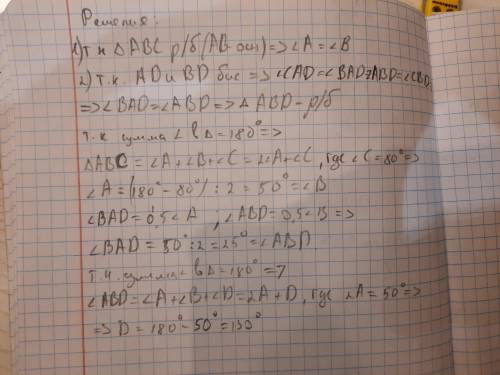 Решение:
1) т.к △ABC р/б (AB осн) => ∠A = ∠B
2) т.к. AD и BD бис => ∠CAD = ∠BAD = ∠ABD = ∠CBD =
=> ∠BAD = ∠ABD => △ABD - р/б
т.к сумма ∠ в △ = 180° =>
△ABC = ∠A + ∠B + ∠C = 2∠A + ∠C, где ∠C = 80° =>
∠A = (180° - 80°) : 2 = 50° = ∠B
∠BAD = 0,5∠A ; ∠ABD = 0,5∠B =>
∠BAD = 50° : 2 = 25° = ∠ABD
т.к. сумма ∠ в △ = 180° =>
∠ABD = ∠A + ∠B + ∠D = 2A + D, где 2A = 50° =>
=> D = 180° - 50° = 130°